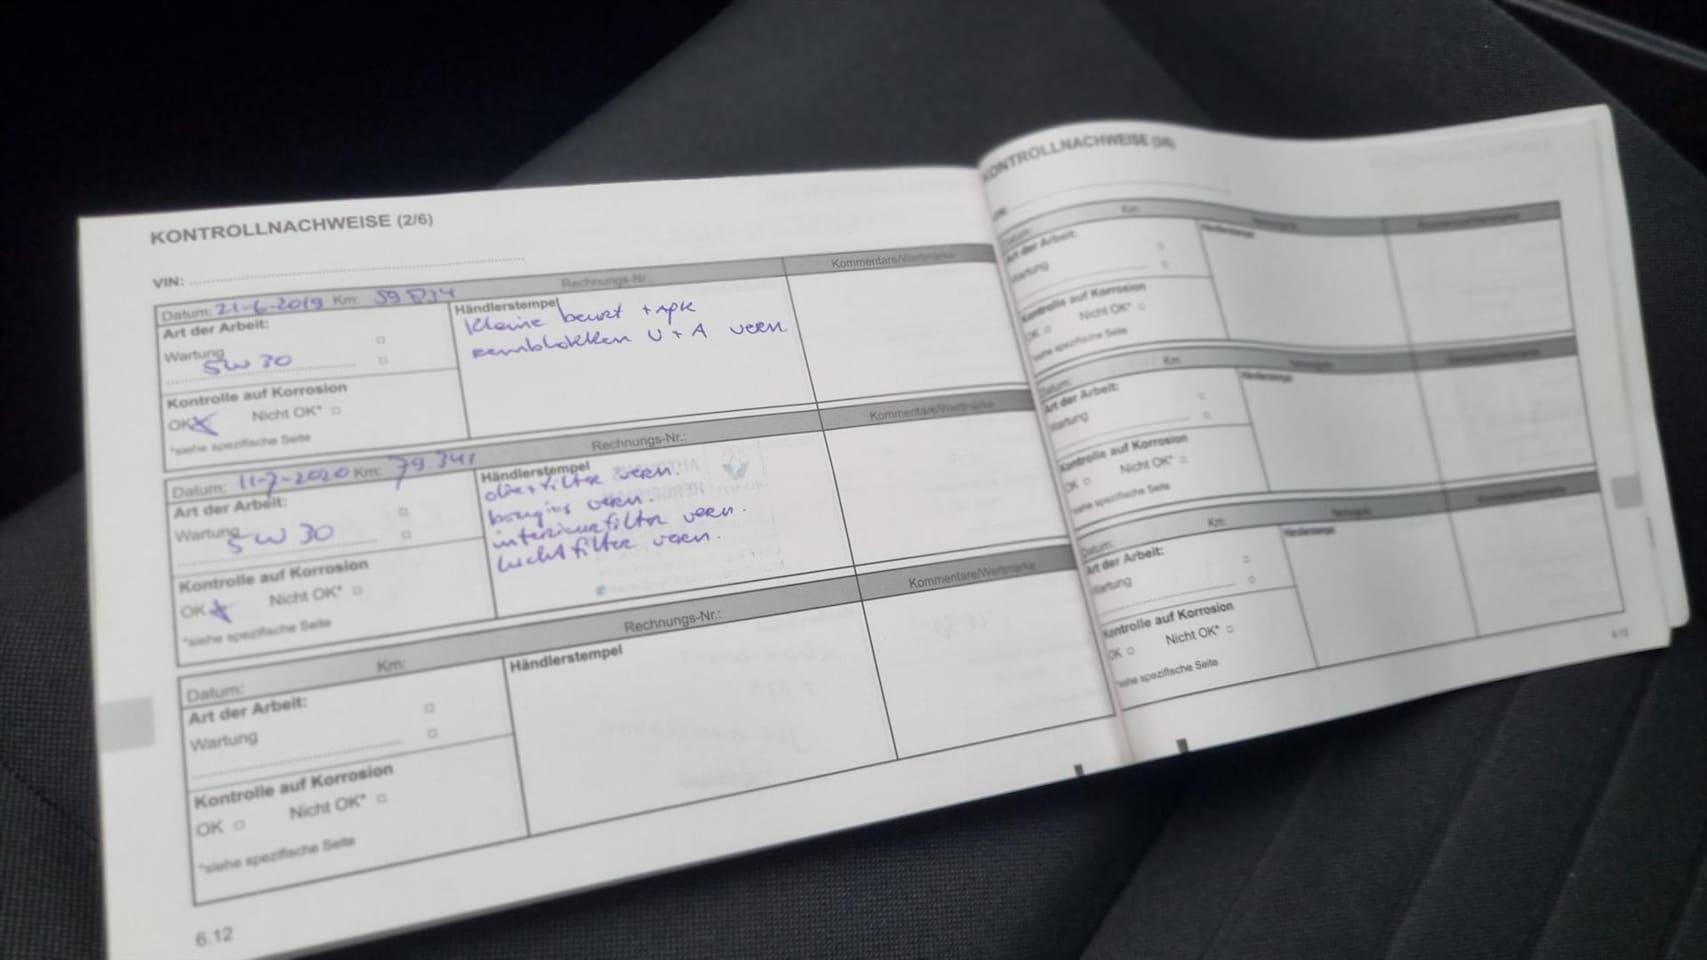 KONTROLLNACHWEISE (2/6)
VIN:
Datum: 21-6-2019 Km:
Rechnungs-Nr.:
Kommentare/Wertmarke
Art der Arbeit:
Wartung
5W30
Händlerstempel
Kleine beurt + apk
remblokken V + A vern
Kontrolle auf Korrosion
OK Nicht OK*
*siehe spezifische Seite
Datum: 11-7-2020 Km: 79.341
Rechnungs-Nr.:
Kommentare/Wertmarke
Art der Arbeit:
Wartung
5W30
Händlerstempel
olie+filter vern.
bougies vern.
interieurfilter vern.
luchtfilter vern.
Kontrolle auf Korrosion
OK Nicht OK*
*siehe spezifische Seite
Datum: Km:
Rechnungs-Nr.:
Kommentare/Wertmarke
Art der Arbeit:
Wartung
Händlerstempel
Kontrolle auf Korrosion
OK Nicht OK*
*siehe spezifische Seite
6.12
KONTROLLNACHWEISE (3/6)
Datum: Km:
Art der Arbeit:
Wartung
Händlerstempel
Kontrolle auf Korrosion
OK Nicht OK*
*siehe spezifische Seite
Datum: Km:
Art der Arbeit:
Wartung
Händlerstempel
Kontrolle auf Korrosion
OK Nicht OK*
*siehe spezifische Seite
Datum: Km:
Art der Arbeit:
Wartung
Händlerstempel
Kontrolle auf Korrosion
OK Nicht OK*
*siehe spezifische Seite
6.13